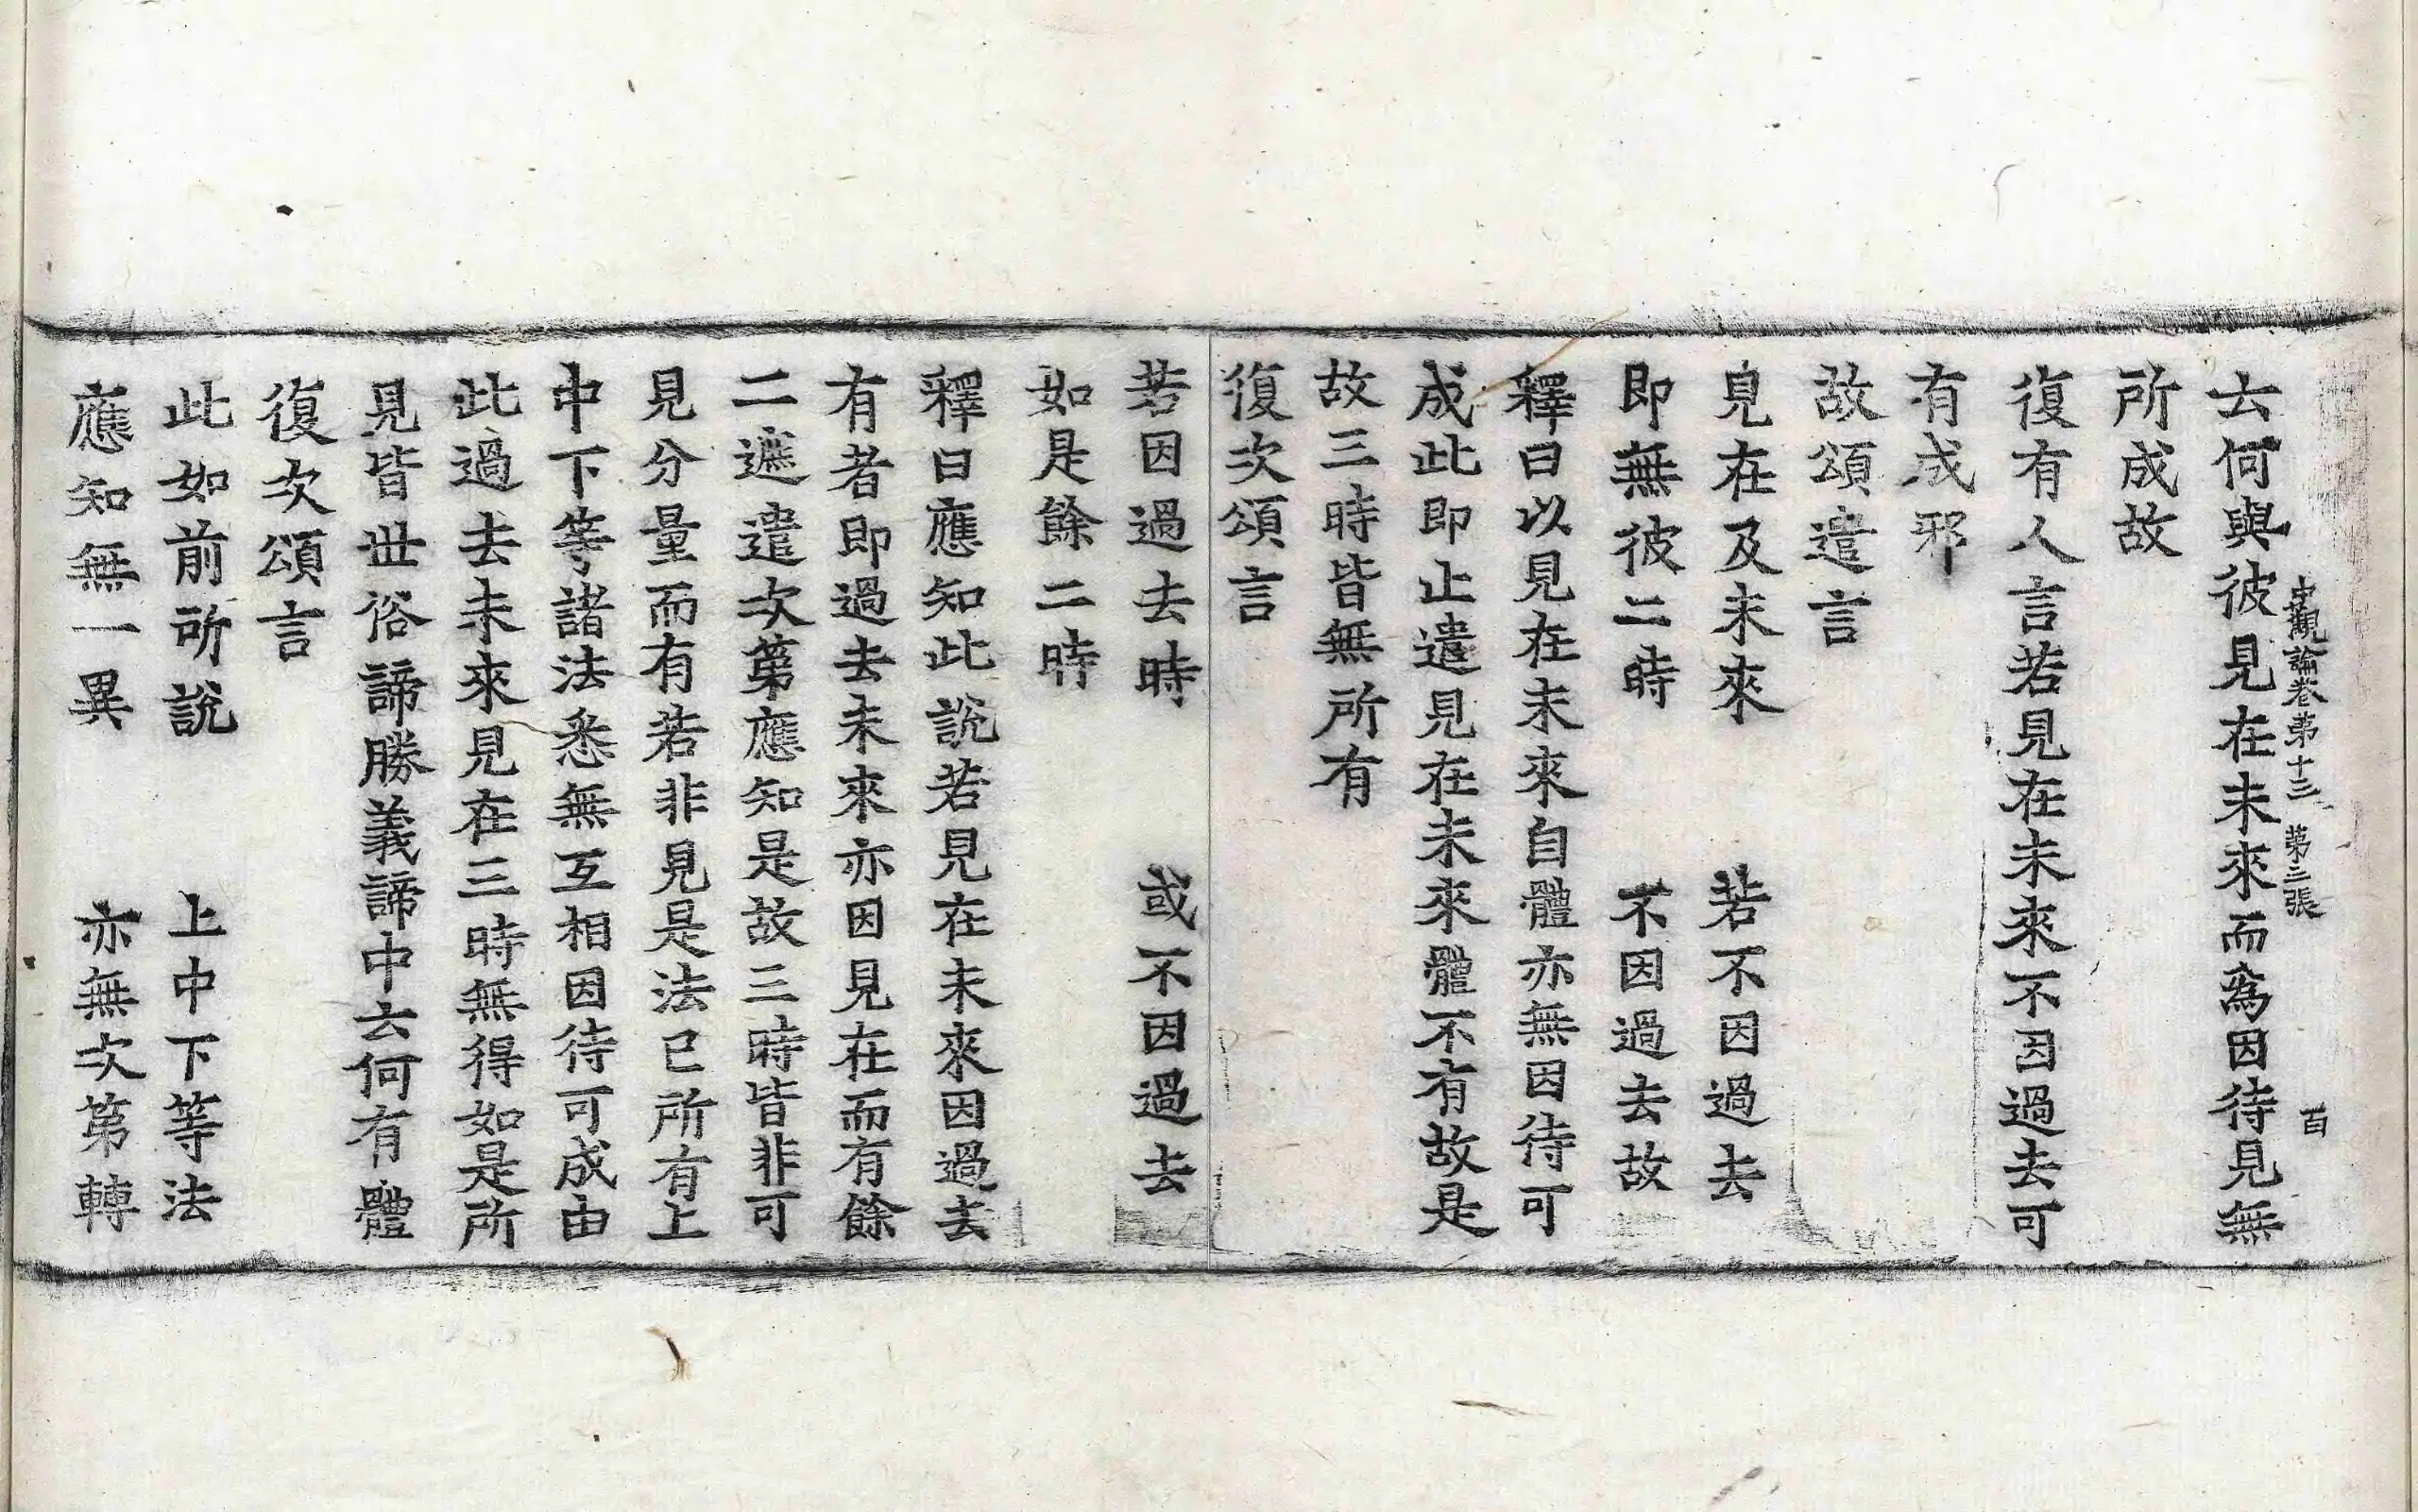 中觀論卷第十三　第三張　百
去何與彼見在未來而爲因待見無
所成故
復有人言若見在未來不因過去可
有成邪
故頌遣言
見在及未來　若不因過去
即無彼二時　不因過去故
釋曰以見在未來自體亦無因待可
成此即止遣見在未來體不有故是
故三時皆無所有
復次頌言
若因過去時　或不因過去
如是餘二時
釋曰應知此說若見在未來因過去
有者即過去未來亦因見在而有餘
二遞遣次第應知是故三時皆非可
見分量而有若非見是法已所有上
中下等諸法悉無互相因待可成由
此過去未來見在三時無得如是所
見皆世俗諦勝義諦中云何有體
復次頌言
此如前所說　上中下等法
應知無一異　亦無次第轉